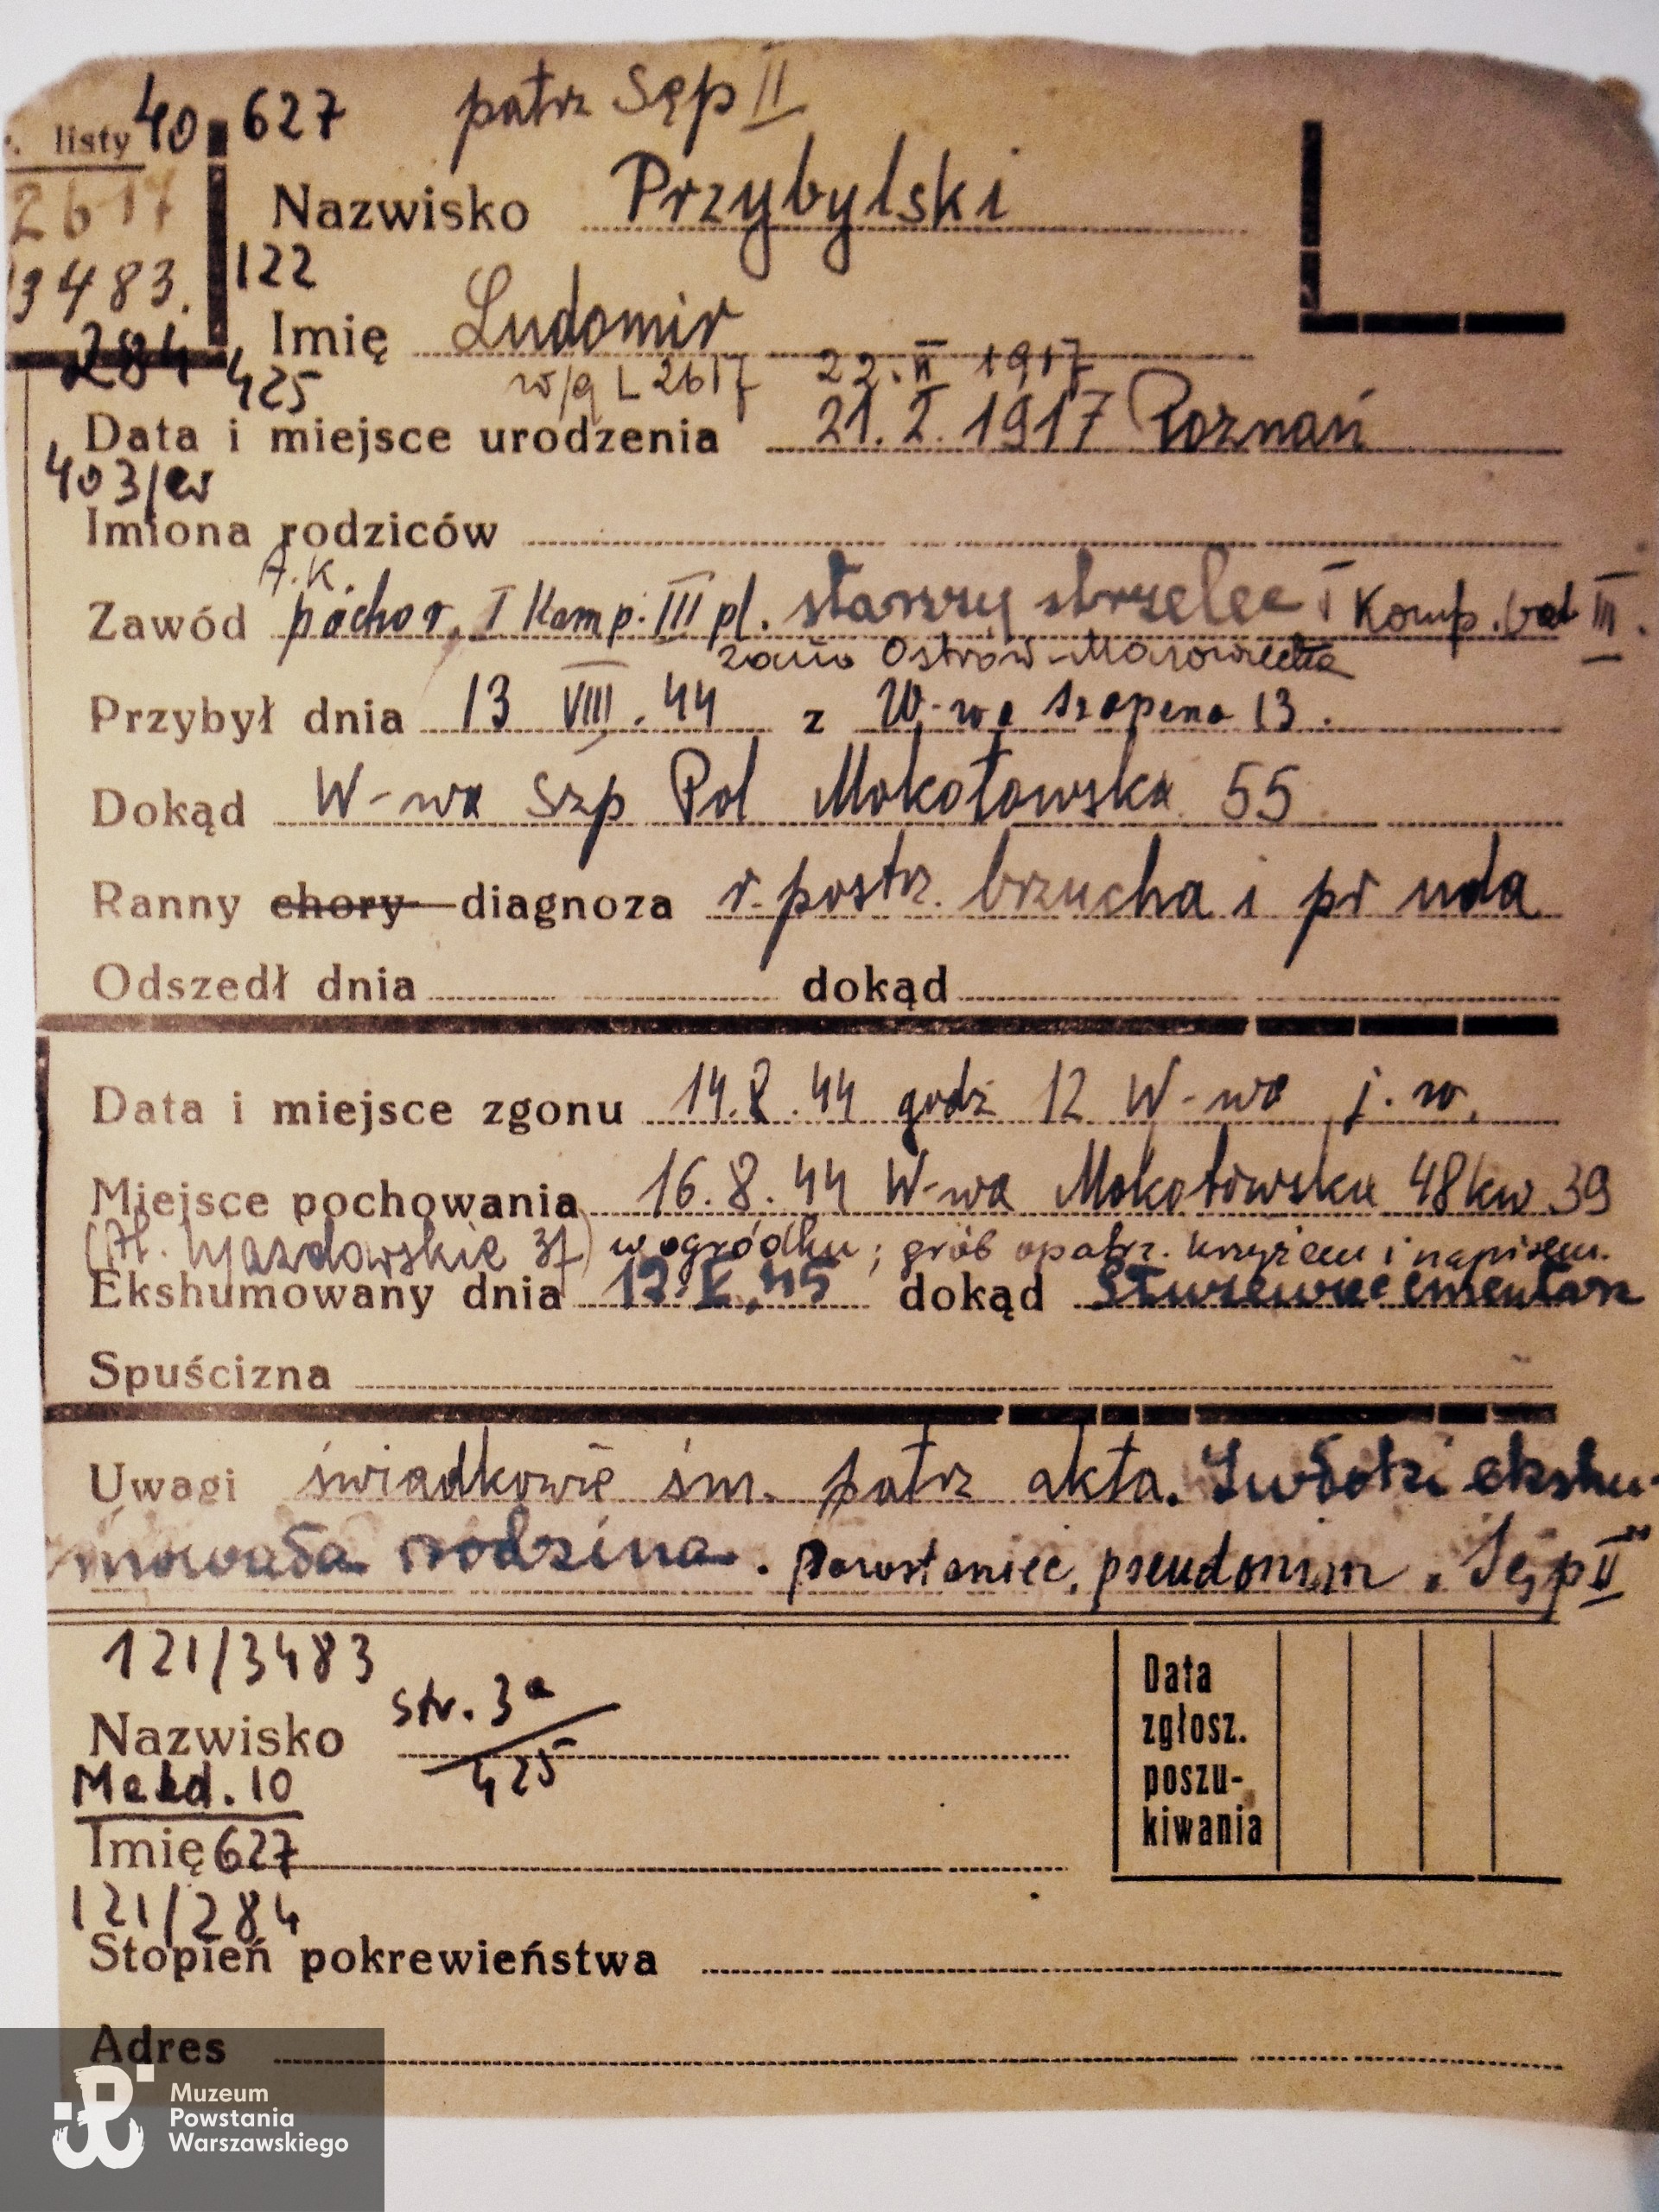 listy 40 627 patrz Sęp II
2617
Nazwisko Przybylski
3483. 122
Imię Ludomir
284 425 w/g L 2617 22.II 1917
Data i miejsce urodzenia 21. I. 1917 Poznań
403/
Imiona rodziców
A.K.
Zawód pchor. I Komp. III pl. starszy strzelec I Komp. bat III.
zam Ostrów-Mazowiecka
Przybył dnia 13 VIII. 44 z W-wa Szopena 13.
Dokąd W-wa Szp Pol Mokotowska 55
Ranny chory diagnoza r. postrz. brzucha i pr uda
Odszedł dnia dokąd
Data i miejsce zgonu 14.8.44 godz 12 W-wa j.w.
Miejsce pochowania 16.8.44 W-wa Mokotowska 48 kw 39
(Al. Ujazdowskie 37) w ogródku; grób opatrz. krzyżem i napisem.
Ekshumowany dnia .45 dokąd Służewiec cmentarz
Spuścizna
Uwagi świadkowie śm. patrz akta. Zwłoki ekshu-
mowała rodzina. Powstaniec, pseudonim „Sęp II"
121/3483
str. 3a
Nazwisko
425
Meld. 10
Imię 627
121/284
Stopień pokrewieństwa
Data
zgłosz.
poszu-
kiwania
Adres
Muzeum
Powstania
Warszawskiego